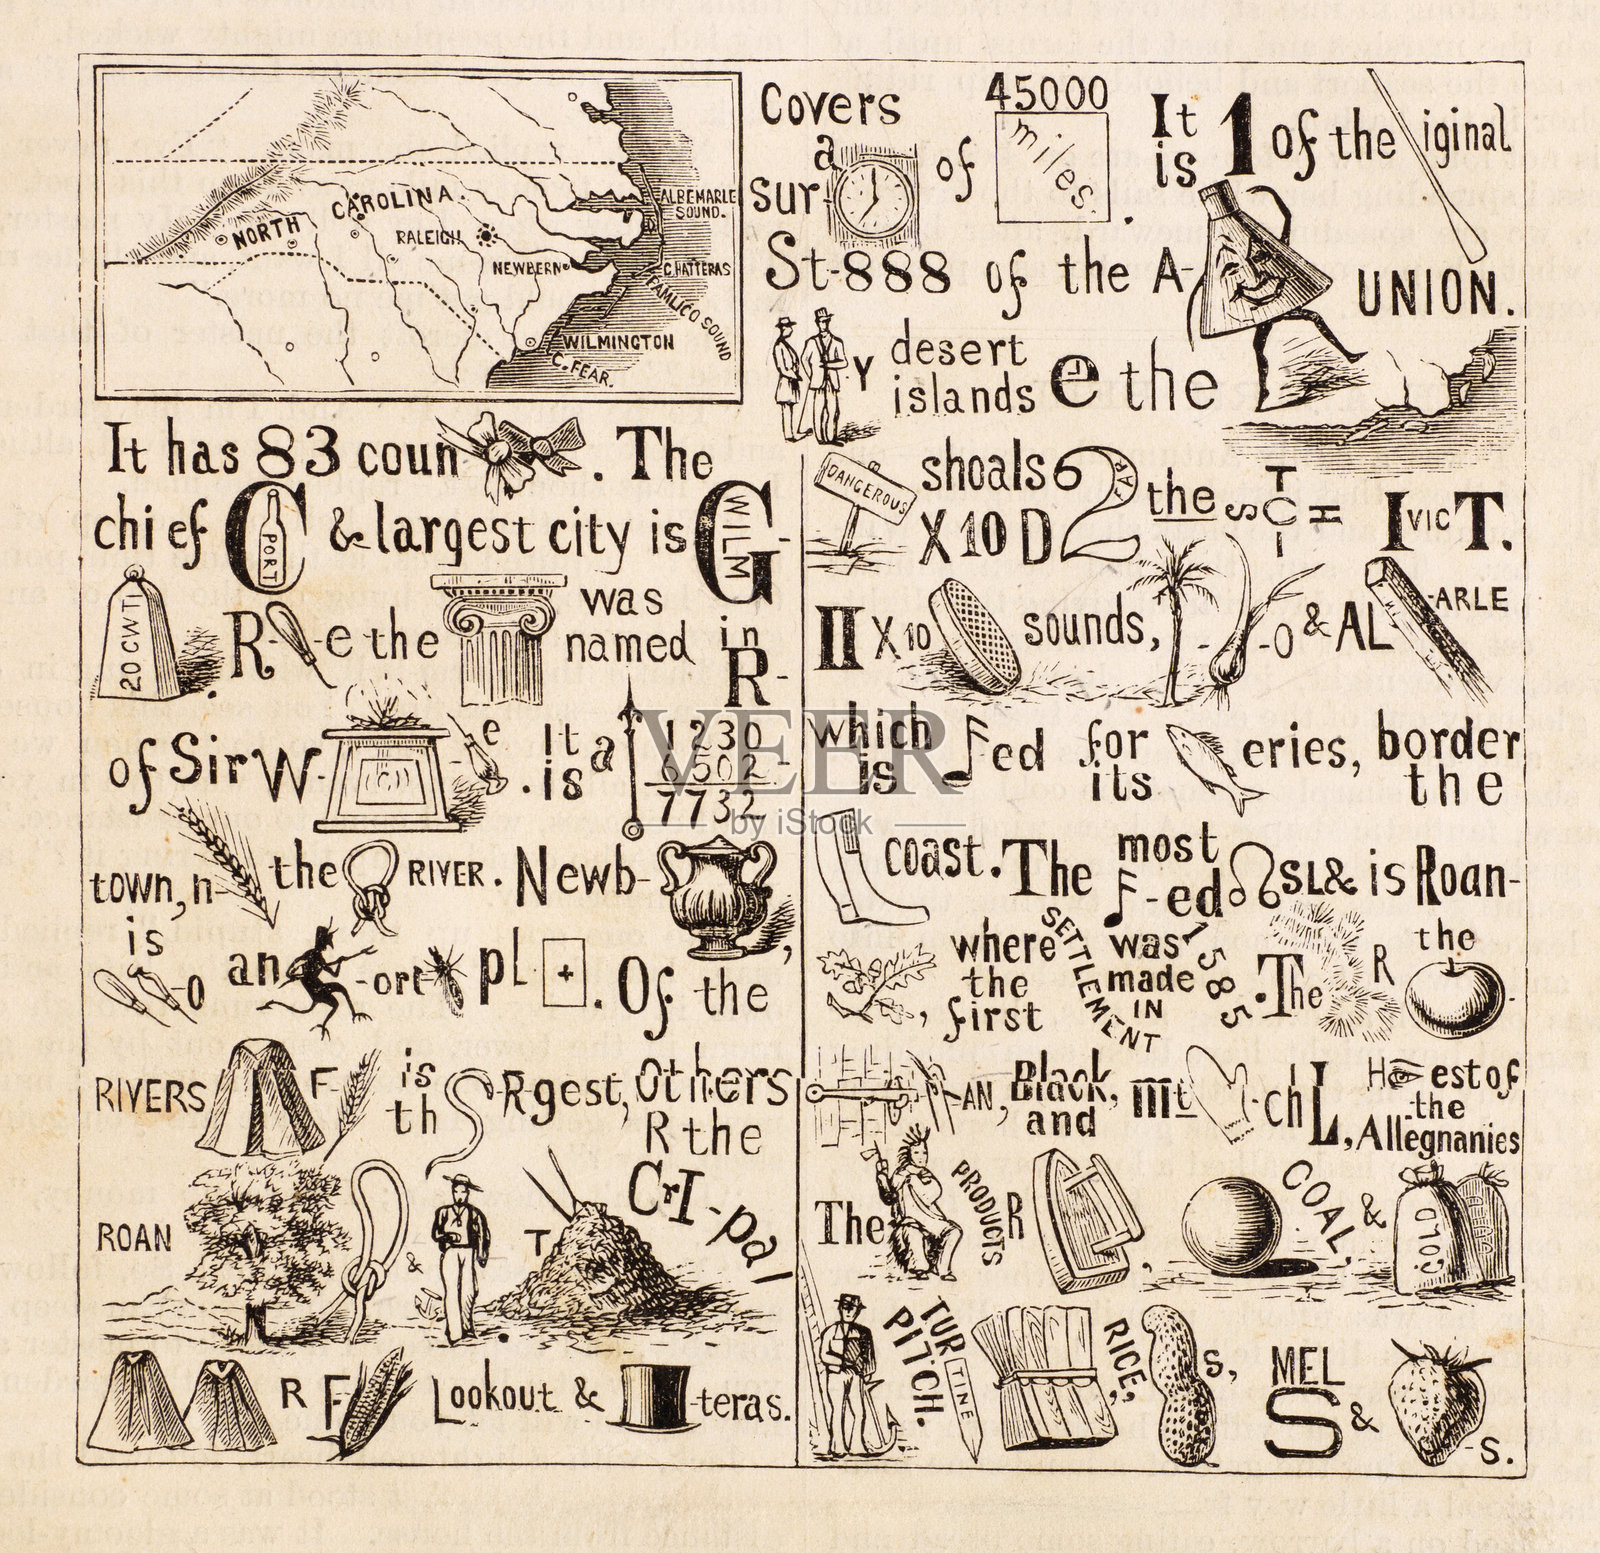 NORTH CAROLINA.
RALEIGH
NEWBERN
WILMINGTON
C. FEAR.
ALBEMARLE
SOUND.
C. HATTERAS
PAMLICO SOUND
Covers
a
sur
of
45000
miles.
.
It
is 1 of the iginal
St-888 of the A-
UNION.
Y desert
islands e the
It has 83 coun . The
chief C PORT & largest city is G WILM -
20 CWT
. R- -e the was
named in
R-
of Sir W- e. It
is a 1230
6502
7732
-
town, n- the RIVER. Newb- ,
is
-o an -ort pl + . Of the
RIVERS F- is
th S-Rgest, Others
R the
ROAN & T CrI-pal
.
R F- Lookout & -teras.
DANGEROUS shoals 6
X 10 D 2 FAR the STICH IVICT.
II X 10 sounds, - -o & AL -ARLE
which
is F ed for
its eries, border
the
coast. The most
F-ed SL& is Roan-
, where
the
first SETTLEMENT was
made
IN 1585
. The R the -
-AN, Black,
and mt -ch L, H est of
the
Alleghanies
The PRODUCTS R , COAL, & GOLD
TUR TINE
PITCH. , RICE, s, MEL
S & -s.
VEER
by iStock